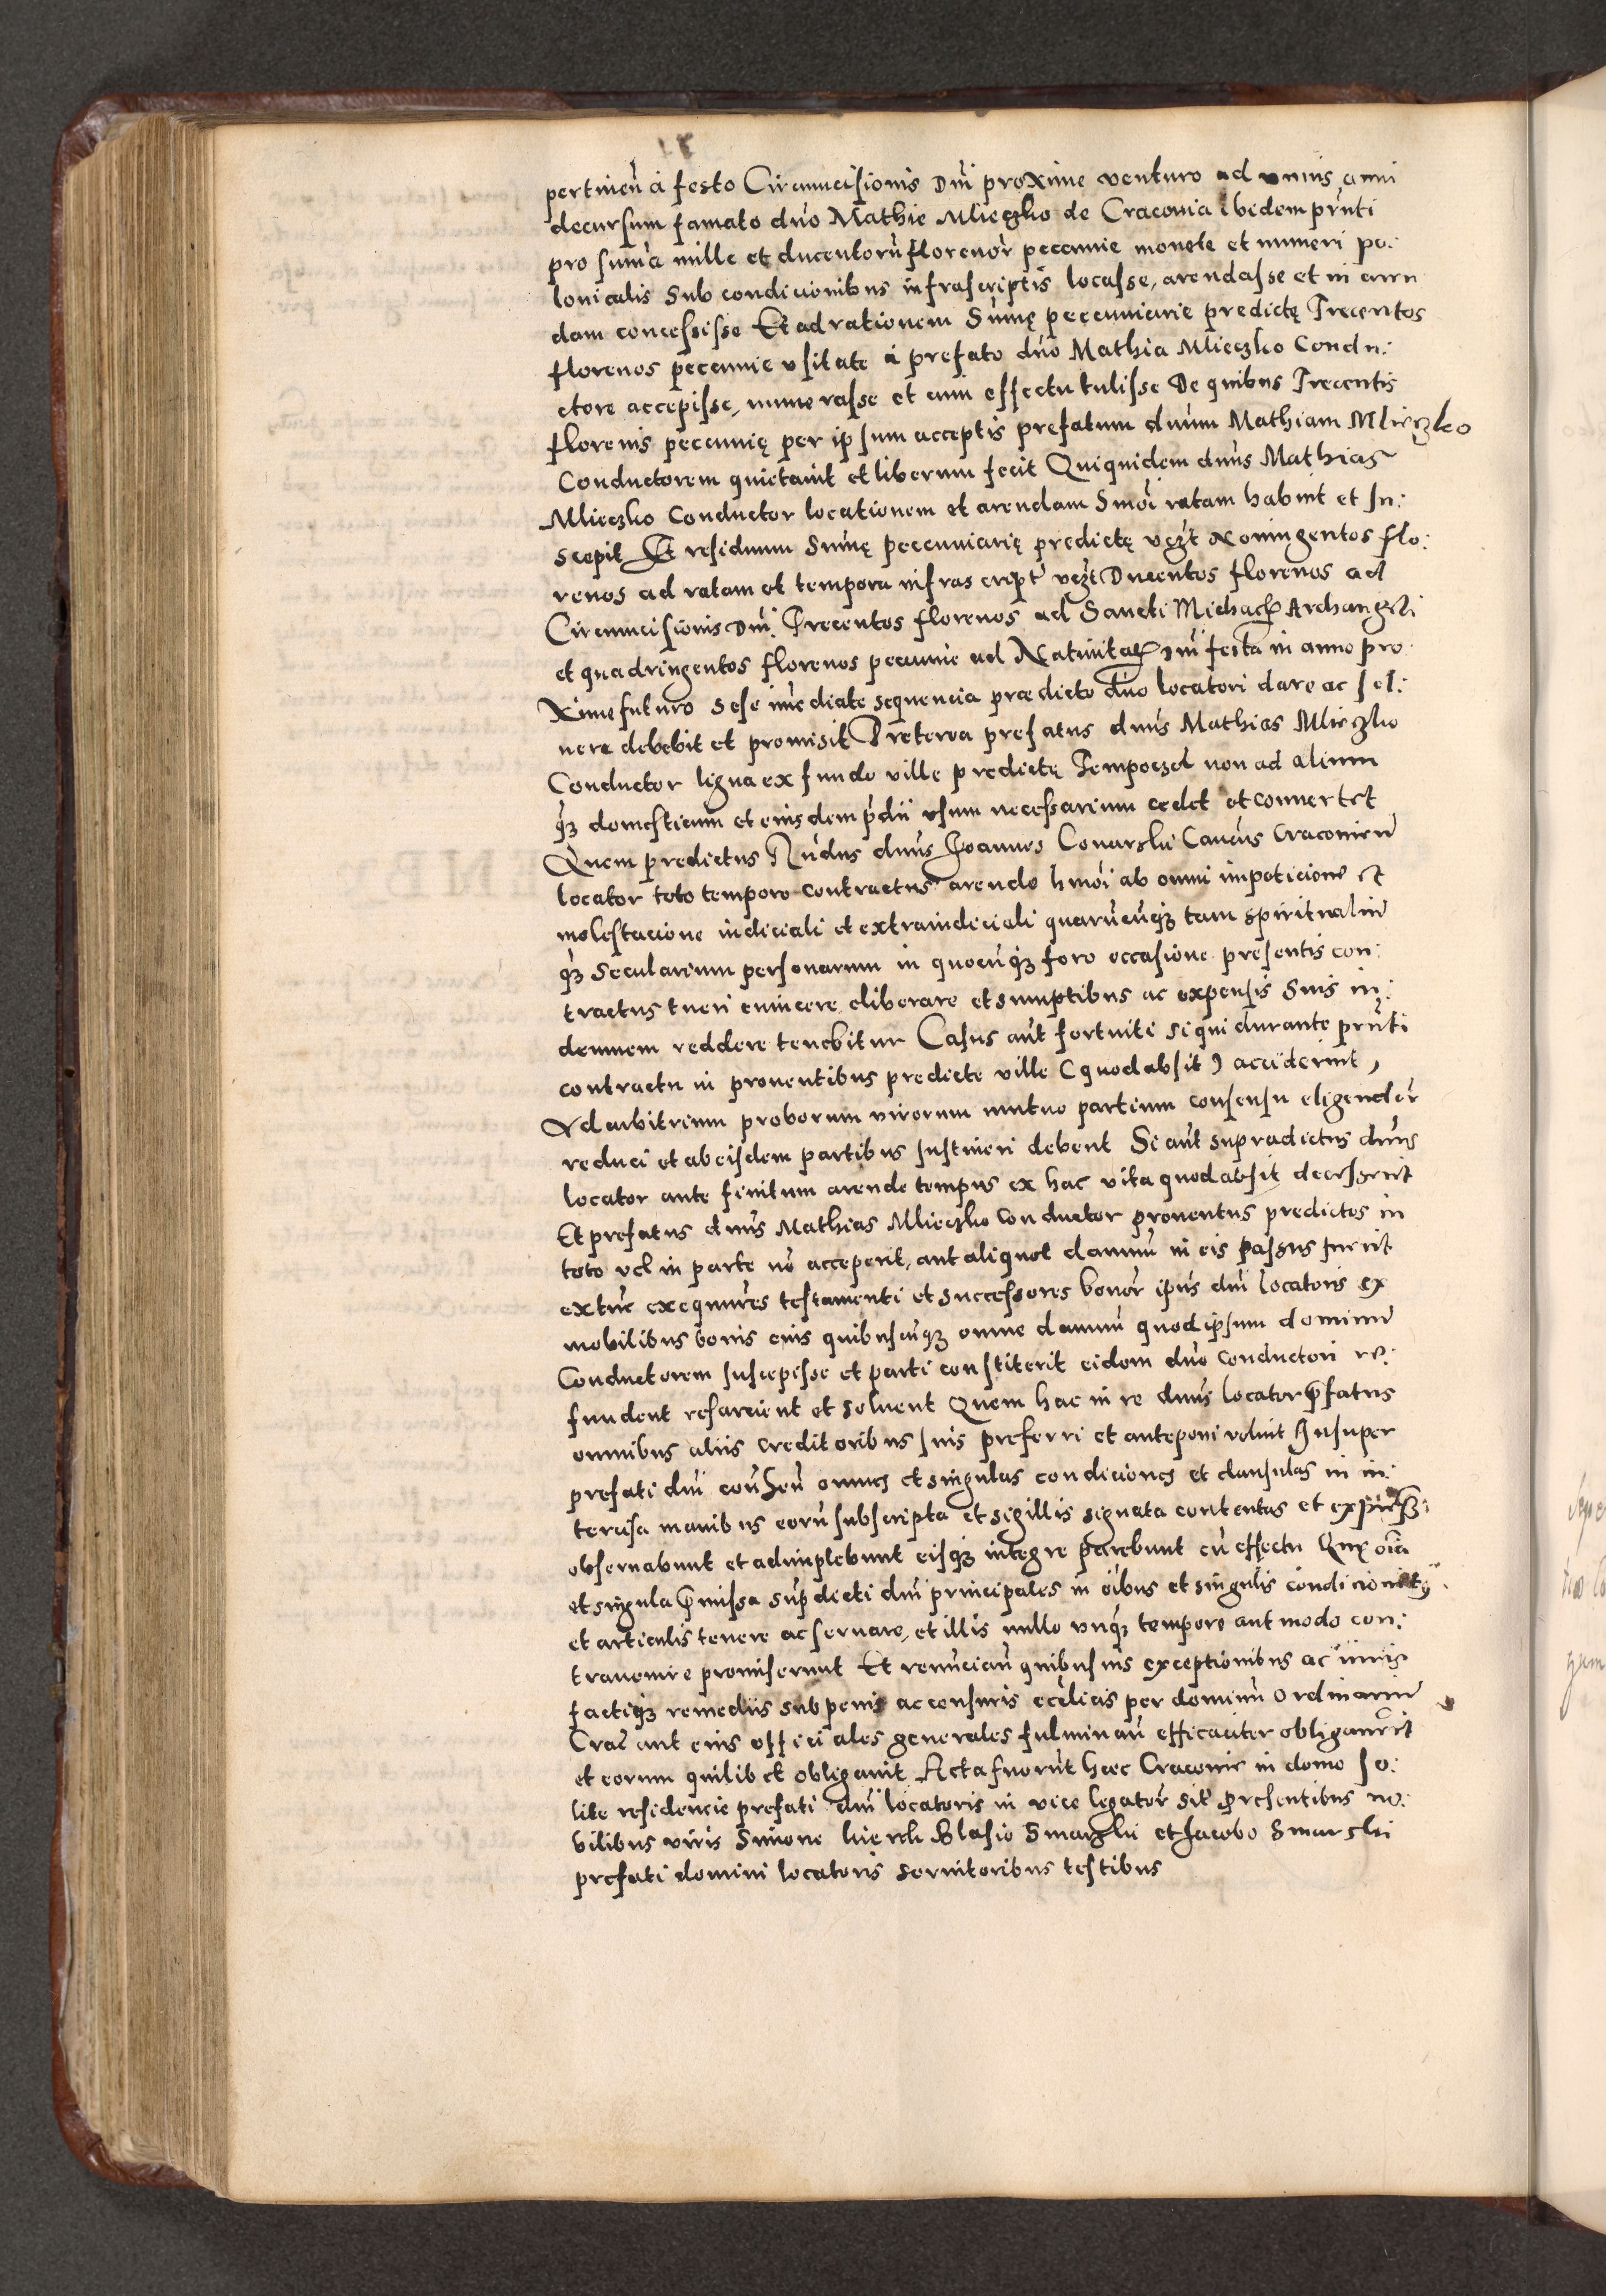 pertineñ á festo Circumcisionis Dni proxime venturo ad unius anni
decursum famato dno Mathie Mlieczko de Cracovia ibidem pr̃nti
pro suma mille et ducentorũ florenor̃ pecunie monete et numeri po:
lonicalis Sub condicionibus infrascriptis locasse, arendasse et in aren
dam concessisse Et ad rationem Sumę pecuniarie predictę Trecentos
florenos pecunie usitate á prefato dno Mathia Mlieczko Condu:
ctore accepisse, numerasse et cum effectu tulisse De quibus Trecentis
florenis pecunię per ipsum acceptis prefatum dnum Mathiam Mlieczko
Conductorem quietavit et liberum fecit Quiquidem dnus Mathias
Mlieczko Conductor locationem et arendam Smõi ratam habuit et Su:
scepit Et residuum Sumę pecuniarię predictę vczt Noningentos flo:
renos ad ratam et tempora infrascript̃ vczt Ducentos florenos ad
Circumcisionis Dni. Trecentos florenos ad Sancti Michaeł Archangeli
et quadringentos florenos pecunie ad Nativitat̃ Dni festa in anno pro
ximefuturo sese imediate sequencia prædicto dno locatori dare ac sol:
vere debebit et promisit Preterea prefatus dnus Mathias Mlieczko
Conductor ligna ex fundo ville predictę non ad alium
qz domesticum et eiusdem p̃dii usum necessarium cedet et convertet
Quem predictus Rñdus dnus Joannes Conarski Canćus Cracovień
locator toto tempore contractus arende hmõi ab omni impeticione et
molestacione iudiciali et extraiudiciali quarũcuqz tam spiritualiũ
qz Secularium personarum in quocũqz foro occasione presentis con:
tractus tueri evincere eliberare et sumptibus ac expensis Suis in:
demnem reddere tenebitur Casus aũt fortuiti siqui durante pr̃nti
contractu in proventibus predicte ville (quodabsit) acciderint,
Ad arbitrium proborum virorum mutuo partium consensu eligendor̃
reduci et ab eisdem partibus sustineri debent Si aũt supradictus dnus
locator ante finitum arende tempus ex hac vita quod absit decesserit
Et prefatus dnus Mathias Mlieczko Conductor proventus predictos in
toto vel in parte nõ acceperit, aut aliquot damnũ in eis passus fuerit
extũc exequutores testamenti et successores bonor̃ ipius dni locatoris ex
mobilibus bonis eius quibuscũqz omne damnũ quod ipsum dominũ
Conductorem suscepisse et parti constiterit eidem dno Conductori re:
fundent resarcient et solvent Quem hac in re dnus locator p̃fatus
omnibus aliis creditoribus suis preferri et anteponi voluit Insuper
prefati dni omnes et singulas condiciones et clausulas in in:
tercisa manibus eorũ subscripta et sigillis signata contentas et
observabunt et adimplebunt eisqz integre parebunt cũ effectu Quę oĩa
et singula p̃missa supdicti dni principales in õibus et singulis condicionibus
et articulis tenere ac servare, et illis nullo unqz tempore aut modo con:
travenire promiserunt Et renũciañ quibusvis exceptionibus ac iuris
factiqz remediis sub penis ac censuris eccłicis per dominũ Ordinariũ
Craĉ aut eius officiales generales fulminañ efficaciter obligaverũt
et eorum quilibet obligavit Acta fuerũt hæc Cracovie in domo so:
lite residencie prefati dni locatoris in vico legator̃ sit̃ presentibus no:
bilibus viris Simone Blasio et Jacobo
prefati domini locatoris servitoribus testibus